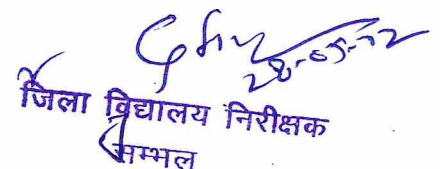 28-05-12
जिला विद्यालय निरीक्षक
सम्भल